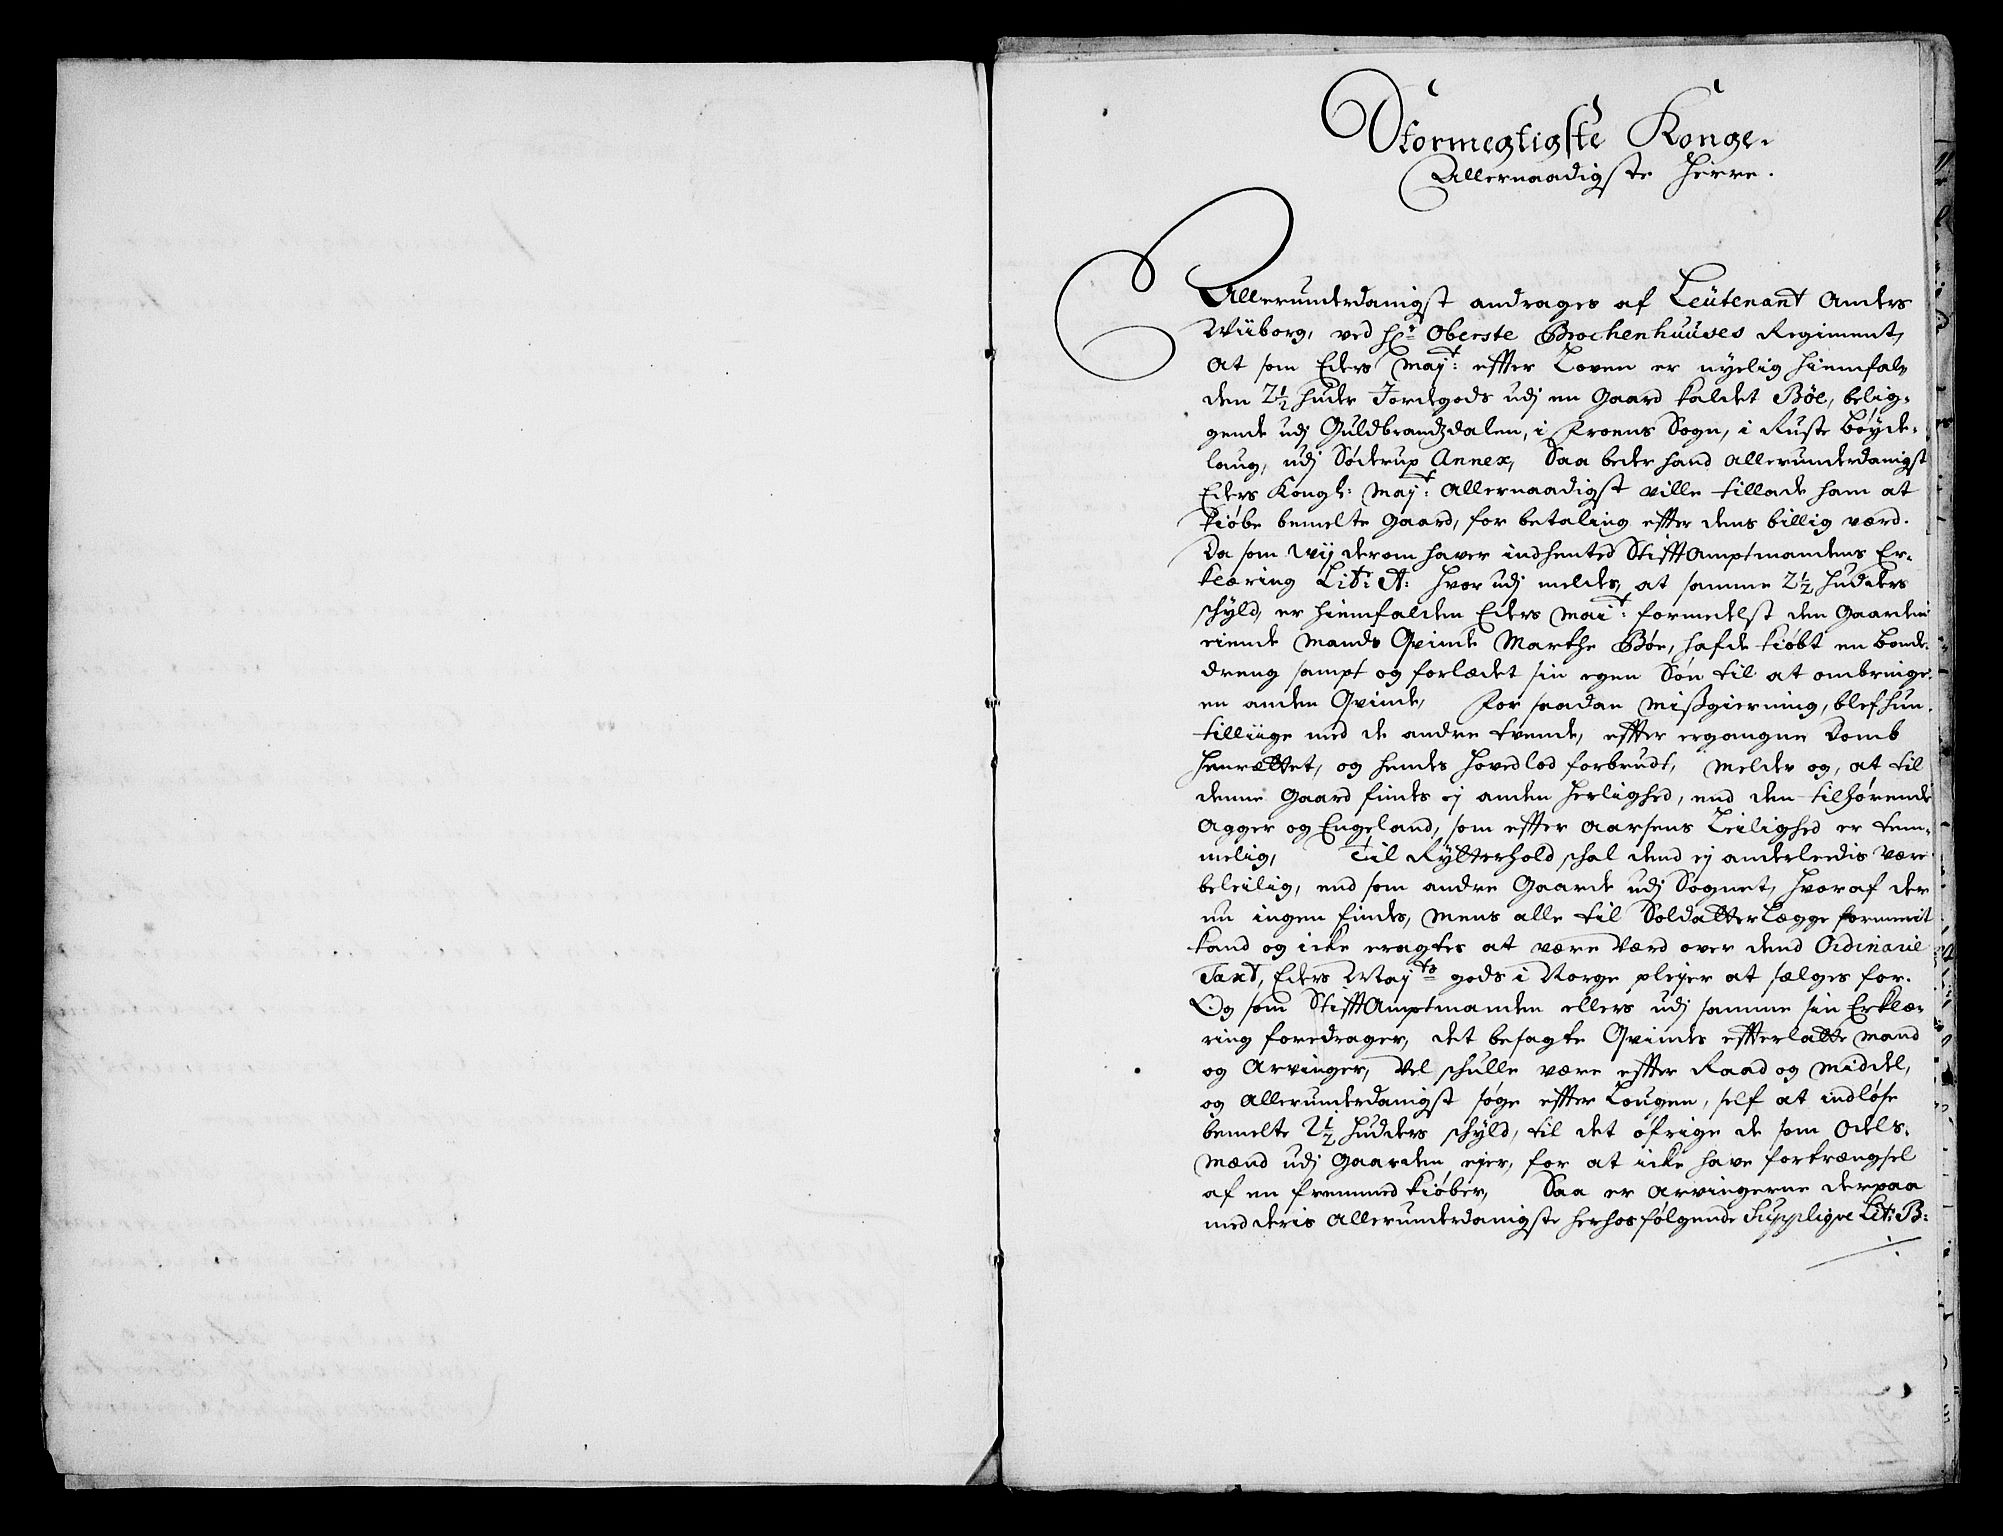 Stormegtigste Konge.
Allernaadigste Herre.
Allerunderdanigst andrages af Leütenant Anders
Wiiborg, ved Hr Oberste Brochenhuuses Regiment,
At som Eders Mayt: effter Loven er nyelig hiemfal-
den 2½ huder Jordegods udj en Gaard kaldet Böe, belig-
gende udj Guldbrandzdalen, i Froens Sogn, i Ruste böyde-
laug, udj Söderup Annex, Saa beder hand allerunderdanigst
Eders Kongl: Mayt: Allernaadigst ville tillade ham at
kiöbe bemelte Gaard, for betaling effter dens billig værd.
Da som Wij derom haver indhented StifftAmptmandens Er-
klæring Lit: A: hvor udj meldes, at samme 2½ Hudders
schyld, er hiemfalden Eders Mait: formedelst den Gaarden
eiende Mands Qvinde Marthe Böe, hafde kiöbt en bonde-
dreng sampt og forlædet sin egen Sön til at ombringe
en anden Qvinde, For saadan Mißgierning, blef hun
tilliige med de andre tvende, effter ergangne Domb
henrættet, og hendes hovedlod forbrudt, Melder og, at til
denne Gaard findes ej anden herlighed, end den tilhörende
Agger og Engeland, som effter Aarsens Leilighed er tem-
melig, Til Rytterhold schal dend ej anderleedis være
beleilig, end som andre Gaarde udj Sognet, hvoraf der
nu ingen findes, mens alle til Soldatter Lægge formeent
kand og icke eragtes at være Værd over dend Ordinarie
Taxt, Eders Mayts gods i Norge plejer at sælges for.
Og som StifftAmptmanden ellers udj samme sin Erklæ-
ring foredrager, det besagte Qvindes effterlatte Mand
og Arvinger, Vel schulle være effter Raad og Middel,
og Allerunderdanigst söge effter Lougen, self at indlöse
bemelte 2½ Hudders schyld, til det öfrige de som Odels-
Mænd udj Gaarden ejer, for at icke have fortrængsel
af en fremmed kiöber, Saa er Arvingerne derpaa
med deris Allerunderdanigste herhosfölgende Suppliqve Lit: B: